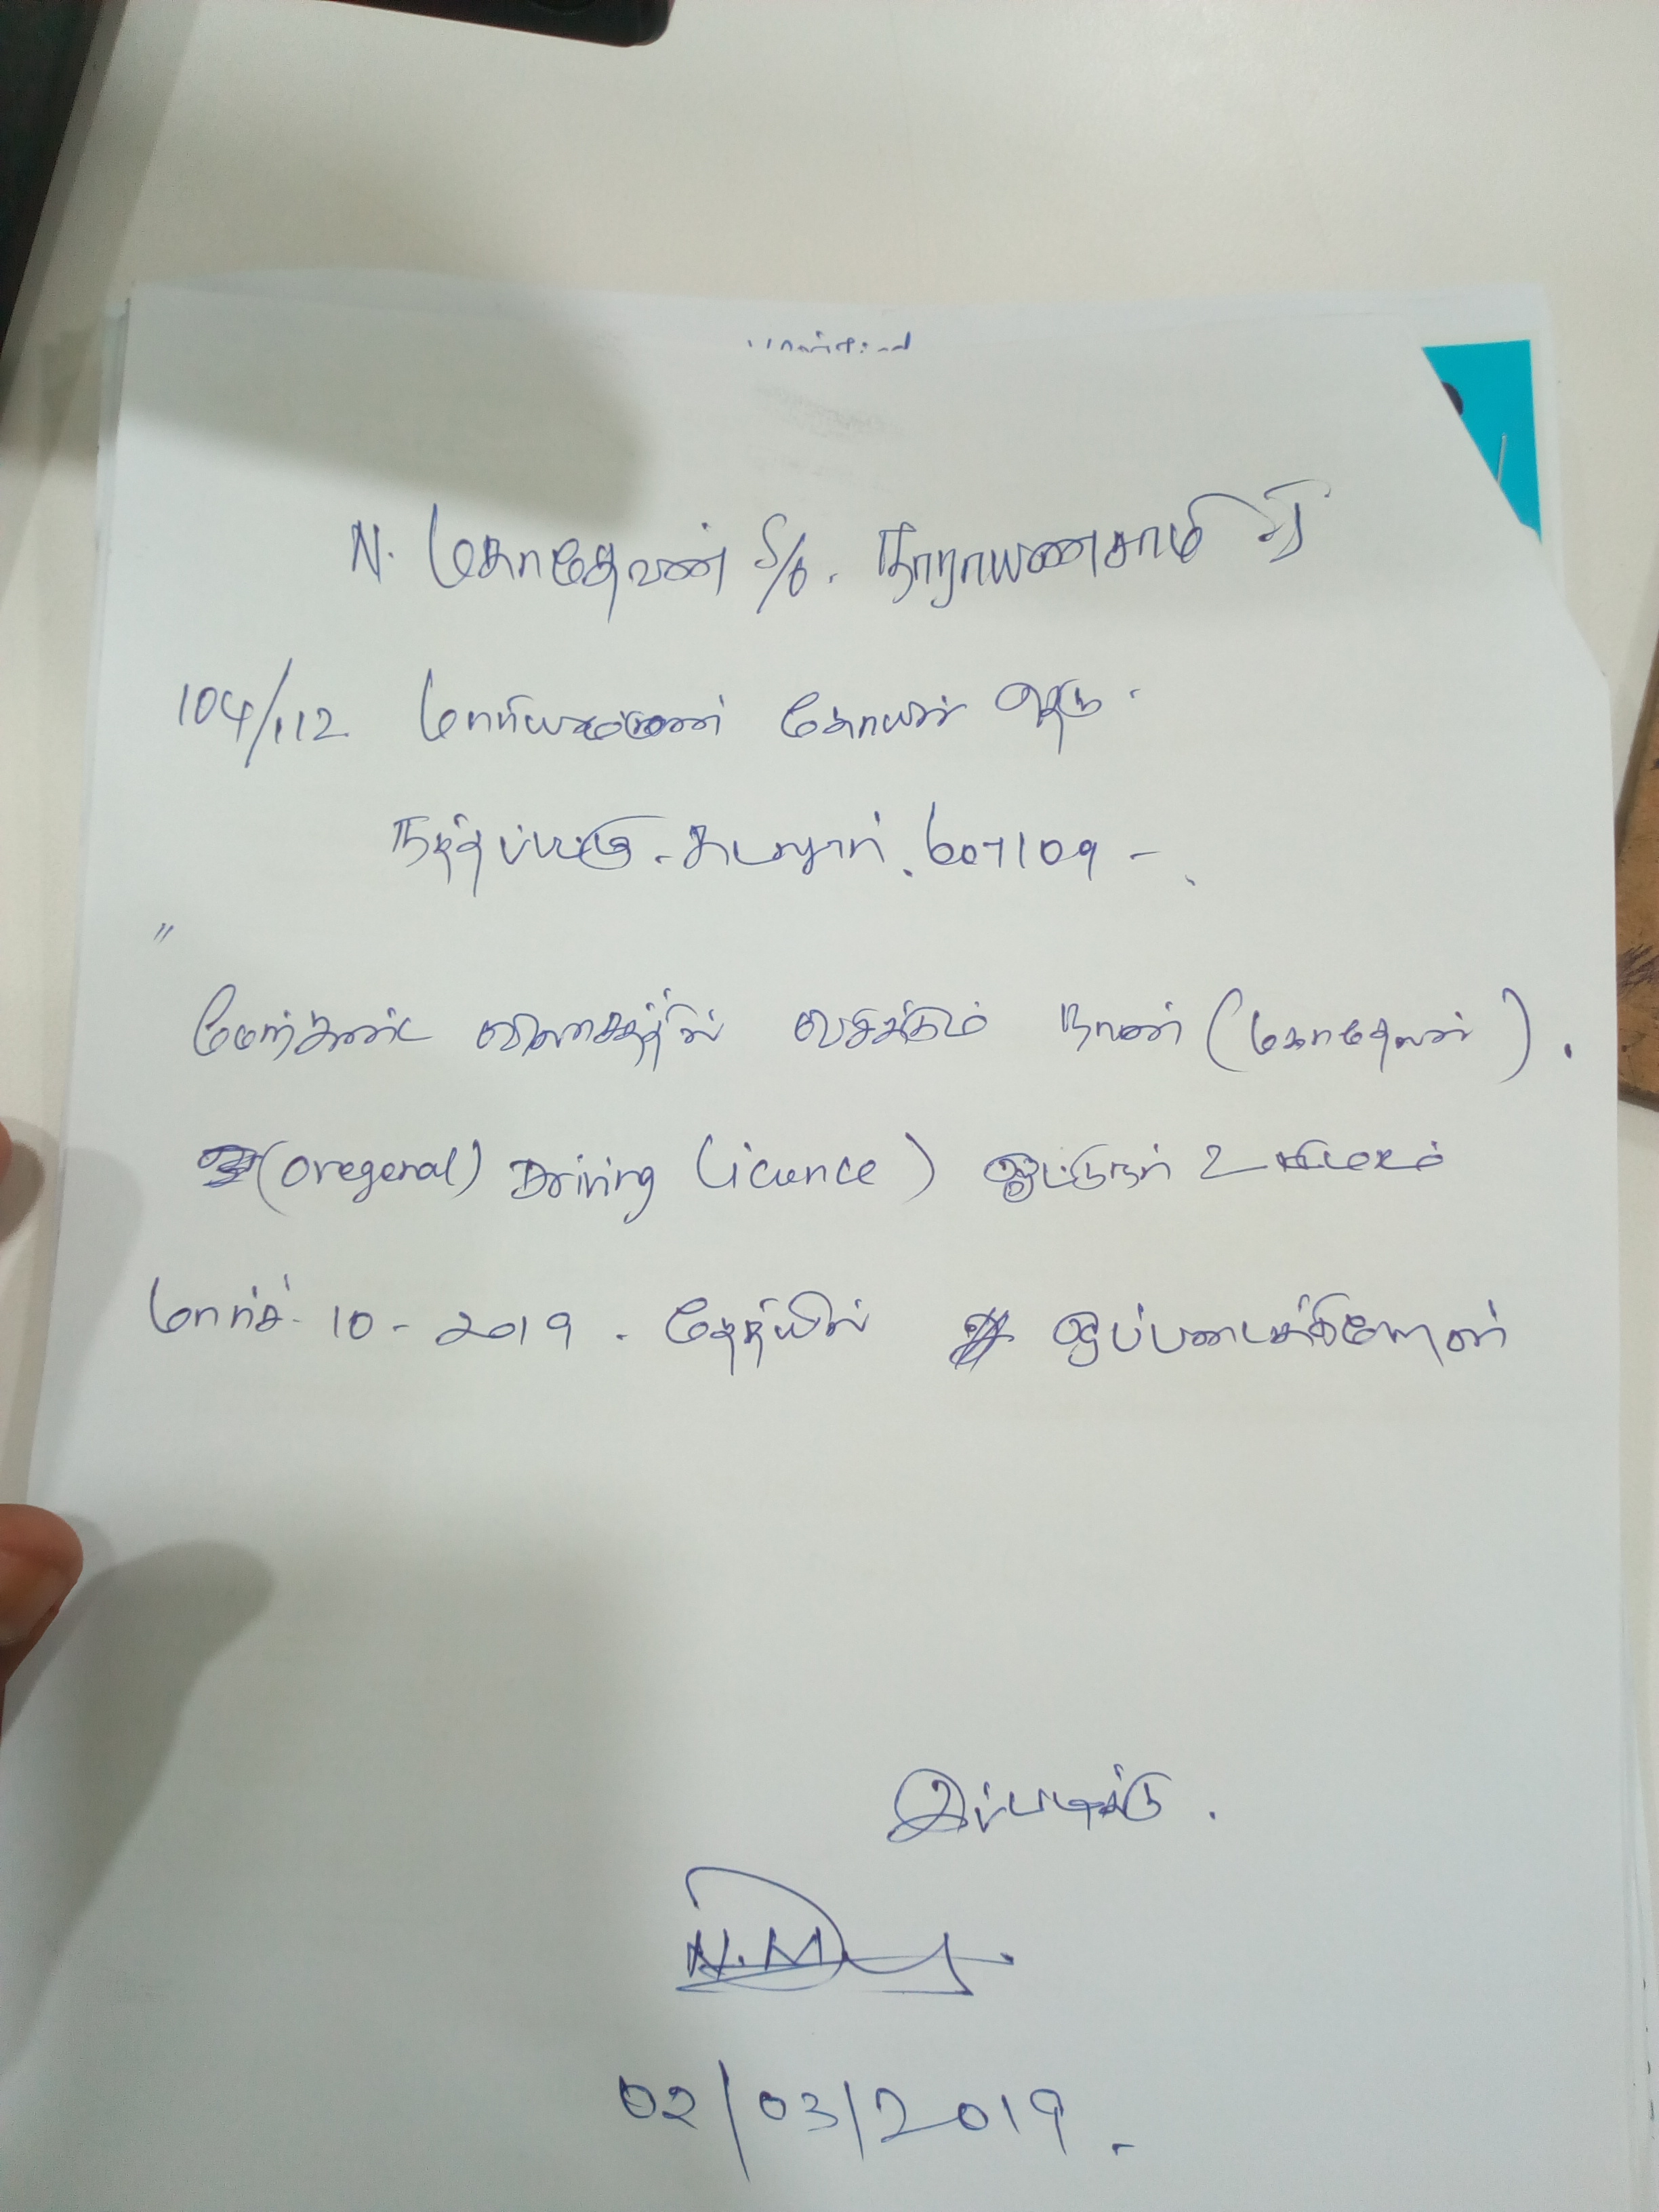 N. மகாதேவன் S/o. நாராயணசாமி
104/112 மாரியம்மன் கோயில் தெரு.
நத்தப்பட்டு - கடலூர். 607109 -.
"
மேற்கண்ட விலாசத்தில் வசிக்கும் நான் (மகாதேவன்).
(Oregenal) Driving Licence) ஓட்டுநர் உரிமம்
மார்ச். 10 - 2019. தேதியில் ஒப்படைக்கிறேன்
இப்படிக்கு.
N.M
02/03/2019.